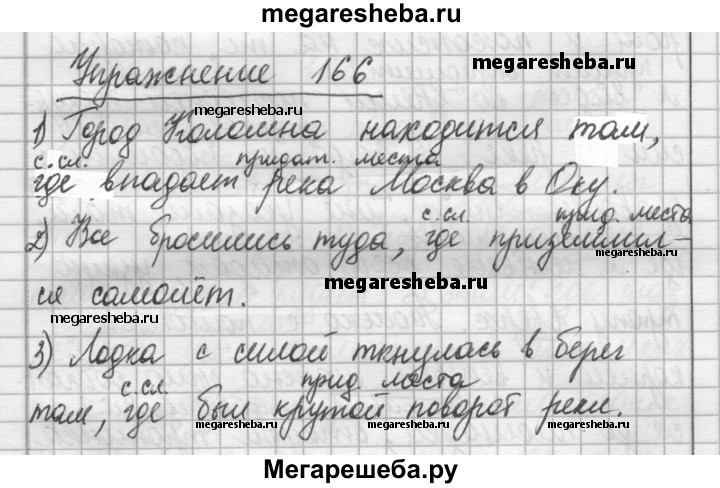 megaresheba.ru
Упражнение 166
megaresheba.ru
megaresheba.ru
1) Город Коломна находится там,
с.сл. придат. места
где впадает река Москва в Оку.
с.сл. прид. места
2) Все бросились туда, где приземлил-
megaresheba.ru
ся самолёт.
megaresheba.ru
megaresheba.ru
3) Лодка с силой ткнулась в берег
с.сл. прид. места
там, где был крутой поворот реки.
megaresheba.ru megaresheba.ru megaresheba.ru
Мегарешеба.ру